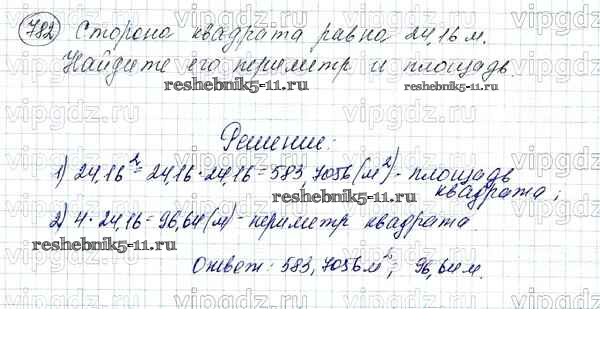 782 Сторона квадрата равна 24,16 м.
Найдите его периметр и площадь.
reshebnik5-11.ru. reshebnik5-11.ru.
Решение:
1) 24,16² = 24,16 · 24,16 = 583,7056 (м²) - площадь
квадрата;
reshebnik5-11.ru.
2) 4 · 24,16 = 96,64 (м) - периметр квадрата
reshebnik5-11.ru.
Ответ: 583,7056 м²; 96,64 м.
vipgdz.ru